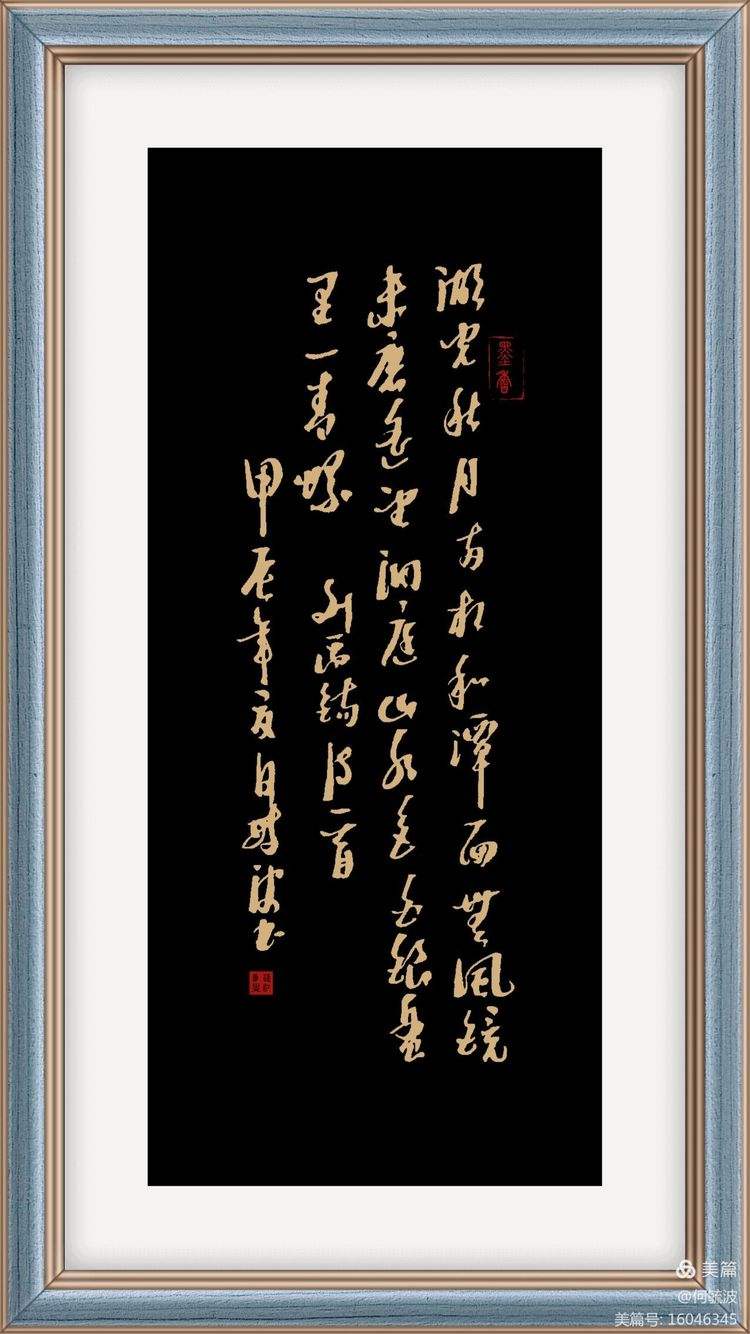 墨香
湖光秋月两相和潭面無风镜
未磨遥望洞庭山水色白银盘
里一青螺 刘禹锡诗一首
甲辰年夏日毓波书
美篇
@何毓波
美篇号: 16046345